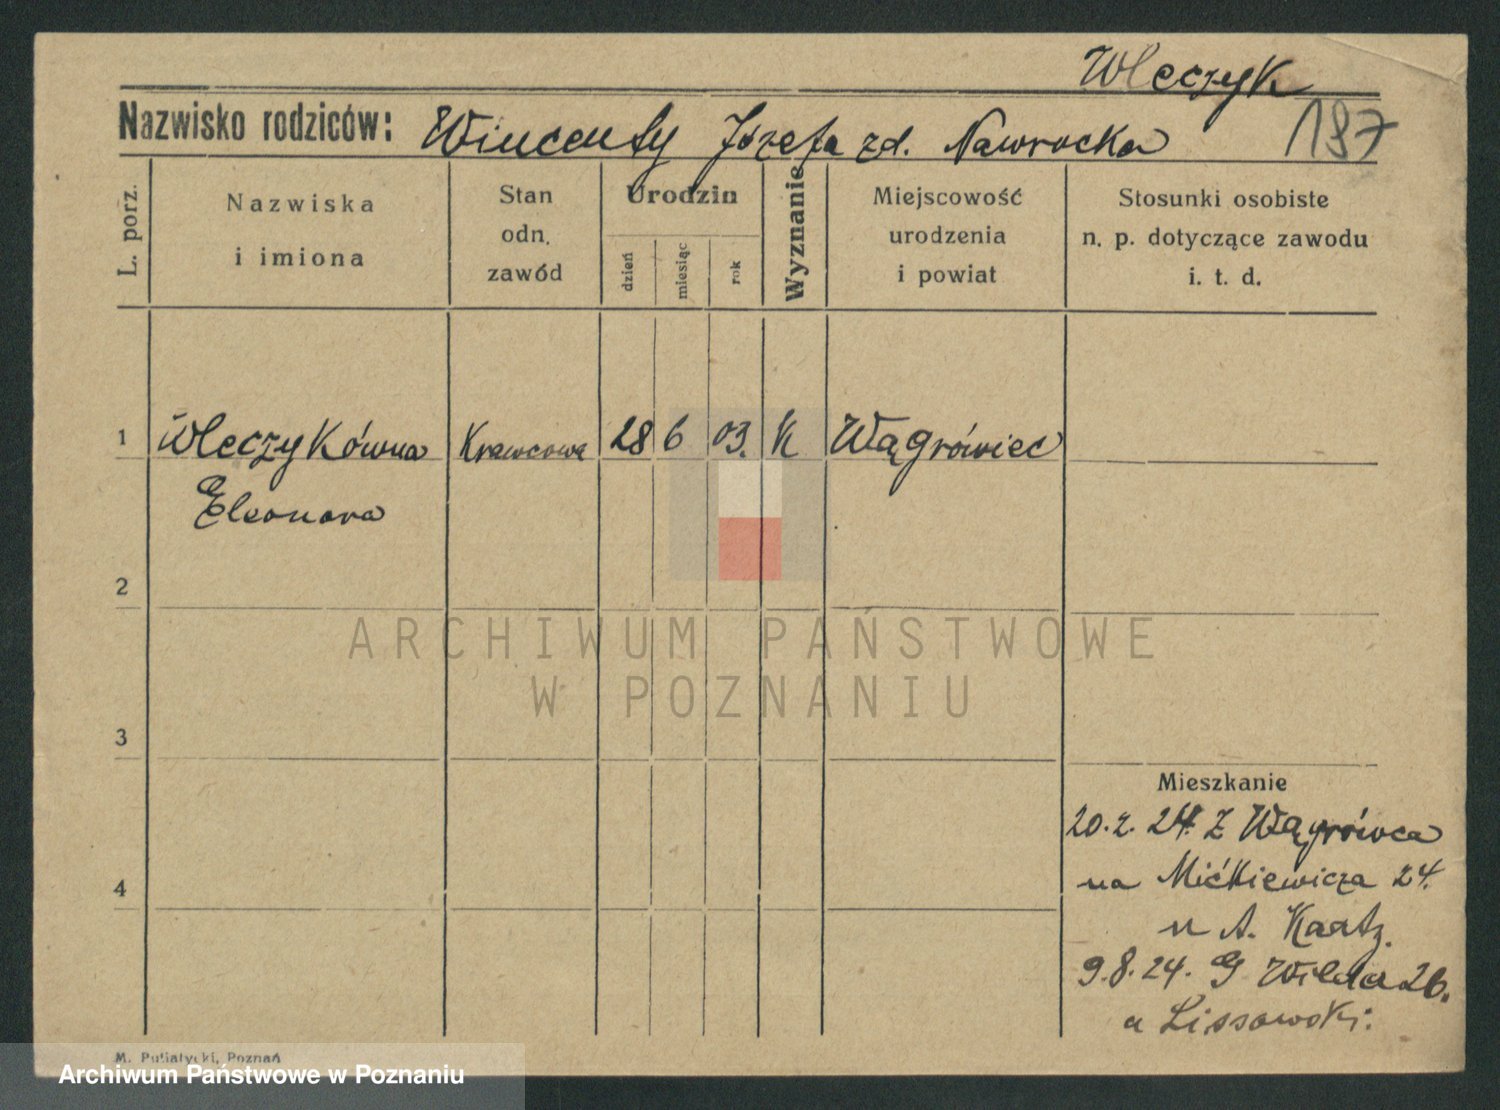 Wleczyk
Nazwisko rodziców: Wincenty Józefa zd. Nawrocka 197
L. porz.
Nazwiska
i imiona
Stan
odn.
zawód
Urodzin
dzień
miesiąc
rok
Wyznanie
Miejscowość
urodzenia
i powiat
Stosunki osobiste
n. p. dotyczące zawodu
i. t. d.
1 Wleczykówna Krawcowa 28 6 03. K Wągrówiec
Eleonora
2
ARCHIWUM PAŃSTWOWE
W POZNANIU
3
Mieszkanie
20.2.24. Z Wągrówca
4
na Mićkiewicza 24.
u A. Kaatz.
9.8.24. G Wilda 26.
a Lissowski.
M. Putiatycki, Poznań
Archiwum Państwowe w Poznaniu